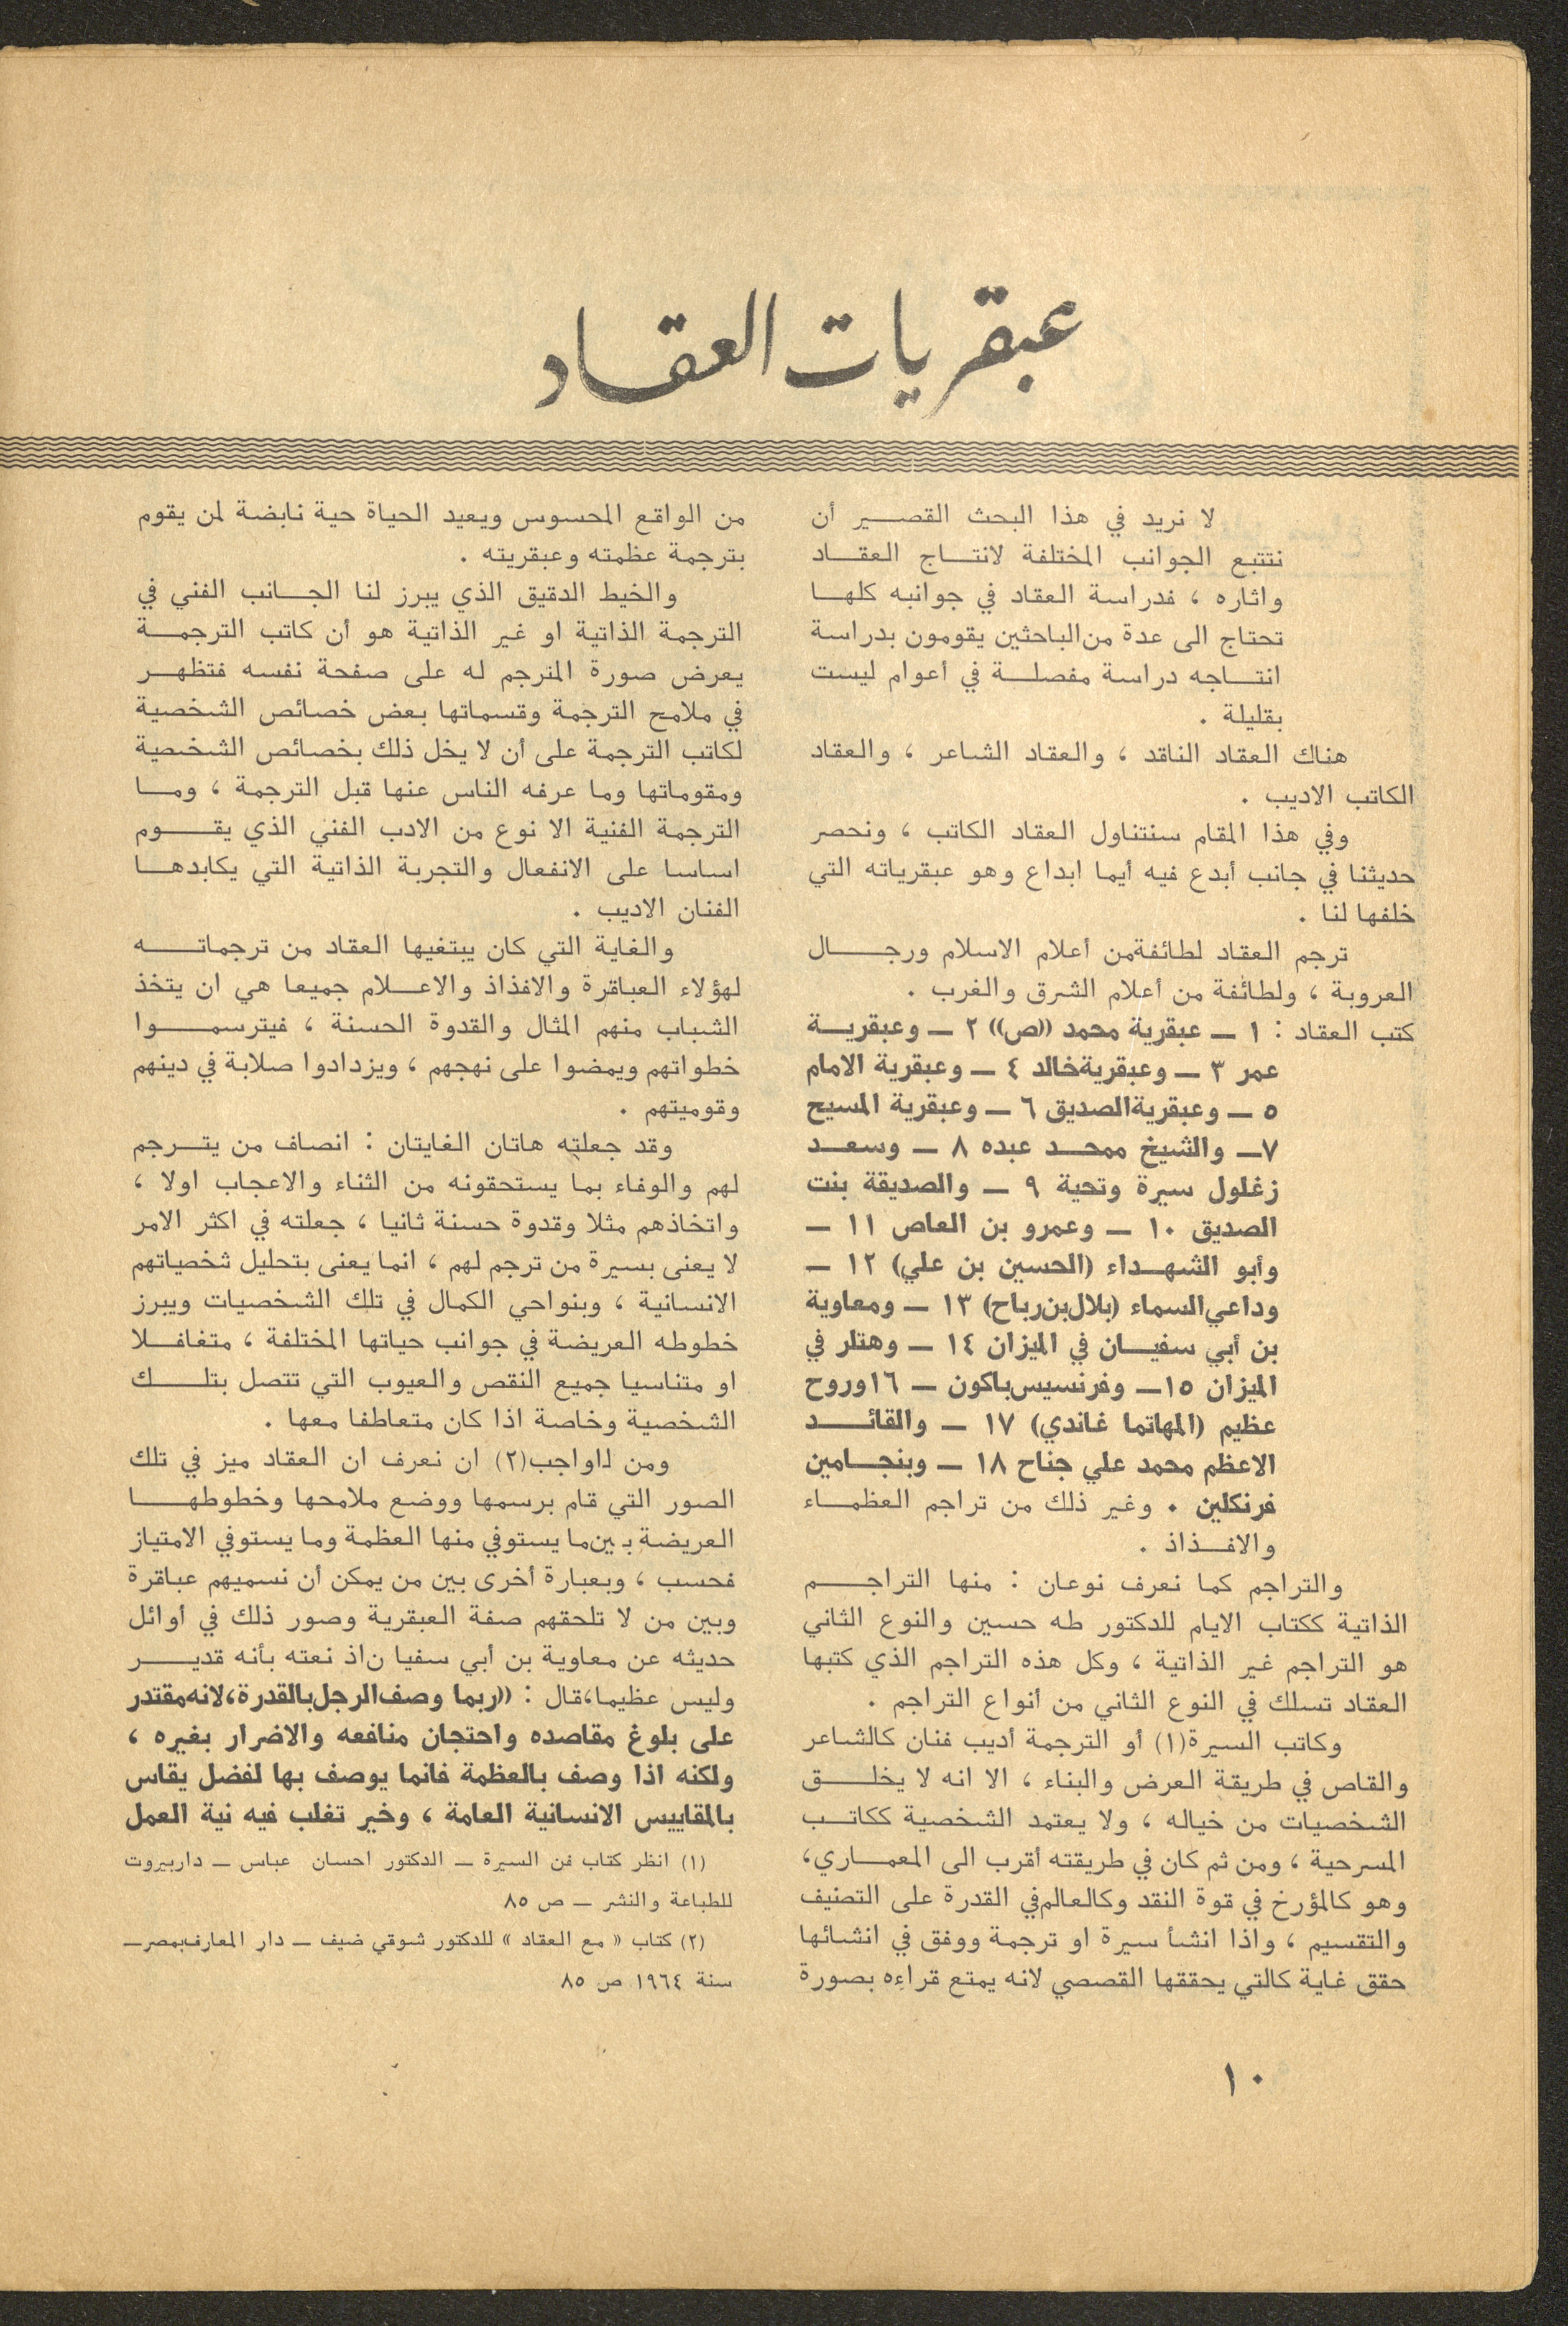 عبقريات العقاد
لا نريد في هذا البحث القصير أن
نتتبع الجوانب المختلفة لانتاج العقاد
واثاره ، فدراسة العقاد في جوانبه كلها
تحتاج الى عدة من الباحثين يقومون بدراسة
انتاجه دراسة مفصلة في أعوام ليست
بقليلة .
هناك العقاد الناقد ، والعقاد الشاعر ، والعقاد
الكاتب الاديب .
وفي هذا المقام سنتناول العقاد الكاتب ، ونحصر
حديثنا في جانب أبدع فيه أيما ابداع وهو عبقرياته التي
خلفها لنا .
ترجم العقاد لطائفة من أعلام الاسلام ورجال
العروبة ، ولطائفة من أعلام الشرق والغرب .
كتب العقاد : ١ ـ عبقرية محمد ((ص)) ٢ ـ وعبقرية
عمر ٣ ـ وعبقرية خالد ٤ ـ وعبقرية الامام
٥ ـ وعبقرية الصديق ٦ ـ وعبقرية المسيح
٧ـ والشيخ ممحد عبده ٨ ـ وسعد
زغلول سيرة وتحية ٩ ـ والصديقة بنت
الصديق ١٠ ـ وعمرو بن العاص ١١ ـ
وأبو الشهداء (الحسين بن علي) ١٢ ـ
وداعي السماء (بلال بن رباح) ١٣ ـ ومعاوية
بن أبي سفيان في الميزان ١٤ ـ وهتلر في
الميزان ١٥ـ وفرنسيس باكون ـ ١٦ وروح
عظيم (المهاتما غاندي) ١٧ ـ والقائد
الاعظم محمد علي جناح ١٨ ـ وبنجامين
فرنكلين . وغير ذلك من تراجم العظماء
والافذاذ .
والتراجم كما نعرف نوعان : منها التراجم
الذاتية ككتاب الايام للدكتور طه حسين والنوع الثاني
هو التراجم غير الذاتية ، وكل هذه التراجم الذي كتبها
العقاد تسلك في النوع الثاني من أنواع التراجم .
وكاتب السيرة(١) أو الترجمة أديب فنان كالشاعر
والقاص في طريقة العرض والبناء ، الا انه لا يخلق
الشخصيات من خياله ، ولا يعتمد الشخصية ككاتب
المسرحية ، ومن ثم كان في طريقته أقرب الى المعماري،
وهو كالمؤرخ في قوة النقد وكالعالم في القدرة على التصنيف
والتقسيم ، واذا انشأ سيرة او ترجمة ووفق في انشائها
حقق غاية كالتي يحققها القصصي لانه يمتع قراءه بصورة
من الواقع المحسوس ويعيد الحياة حية نابضة لمن يقوم
بترجمة عظمته وعبقريته .
والخيط الدقيق الذي يبرز لنا الجانب الفني في
الترجمة الذاتية او غير الذاتية هو أن كاتب الترجمة
يعرض صورة المترجم له على صفحة نفسه فتظهر
في ملامح الترجمة وقسماتها بعض خصائص الشخصية
لكاتب الترجمة على أن لا يخل ذلك بخصائص الشخصية
ومقوماتها وما عرفه الناس عنها قبل الترجمة ، وما
الترجمة الفنية الا نوع من الادب الفني الذي يقوم
اساسا على الانفعال والتجربة الذاتية التي يكابدها
الفنان الاديب .
والغاية التي كان يبتغيها العقاد من ترجماته
لهؤلاء العباقرة والافذاذ والاعلام جميعا هي ان يتخذ
الشباب منهم المثال والقدوة الحسنة ، فيترسموا
خطواتهم ويمضوا على نهجهم ، ويزدادوا صلابة في دينهم
وقوميتهم .
وقد جعلته هاتان الغايتان : انصاف من يترجم
لهم والوفاء بما يستحقونه من الثناء والاعجاب اولا ،
واتخاذهم مثلا وقدوة حسنة ثانيا ، جعلته في اكثر الامر
لا يعنى بسيرة من ترجم لهم ، انما يعنى بتحليل شخصياتهم
الانسانية ، وبنواحي الكمال في تلك الشخصيات ويبرز
خطوطه العريضة في جوانب حياتها المختلفة ، متغافلا
او متناسيا جميع النقص والعيوب التي تتصل بتلك
الشخصية وخاصة اذا كان متعاطفا معها .
ومن لاواجب(٢) ان نعرف ان العقاد ميز في تلك
الصور التي قام برسمها ووضع ملامحها وخطوطها
العريضة بين ما يستوفي منها العظمة وما يستوفي الامتياز
فحسب ، وبعبارة أخرى بين من يمكن أن نسميهم عباقرة
وبين من لا تلحقهم صفة العبقرية وصور ذلك في أوائل
حديثه عن معاوية بن أبي سفيا ن اذ نعته بأنه قدير
وليس عظيما،قال : ((ربما وصف الرجل بالقدرة،لانه مقتدر
على بلوغ مقاصده واحتجان منافعه والاضرار بغيره ،
ولكنه اذا وصف بالعظمة فانما يوصف بها لفضل يقاس
بالمقاييس الانسانية العامة ، وخير تغلب فيه نية العمل
(١) انظر كتاب فن السيرة ـ الدكتور احسان عباس ـ دار بيروت
للطباعة والنشر ـ ص ٨٥
(٢) كتاب « مع العقاد » للدكتور شوقي ضيف ـ دار المعارف بمصر ـ
سنة ١٩٦٤ ص ٨٥
١٠